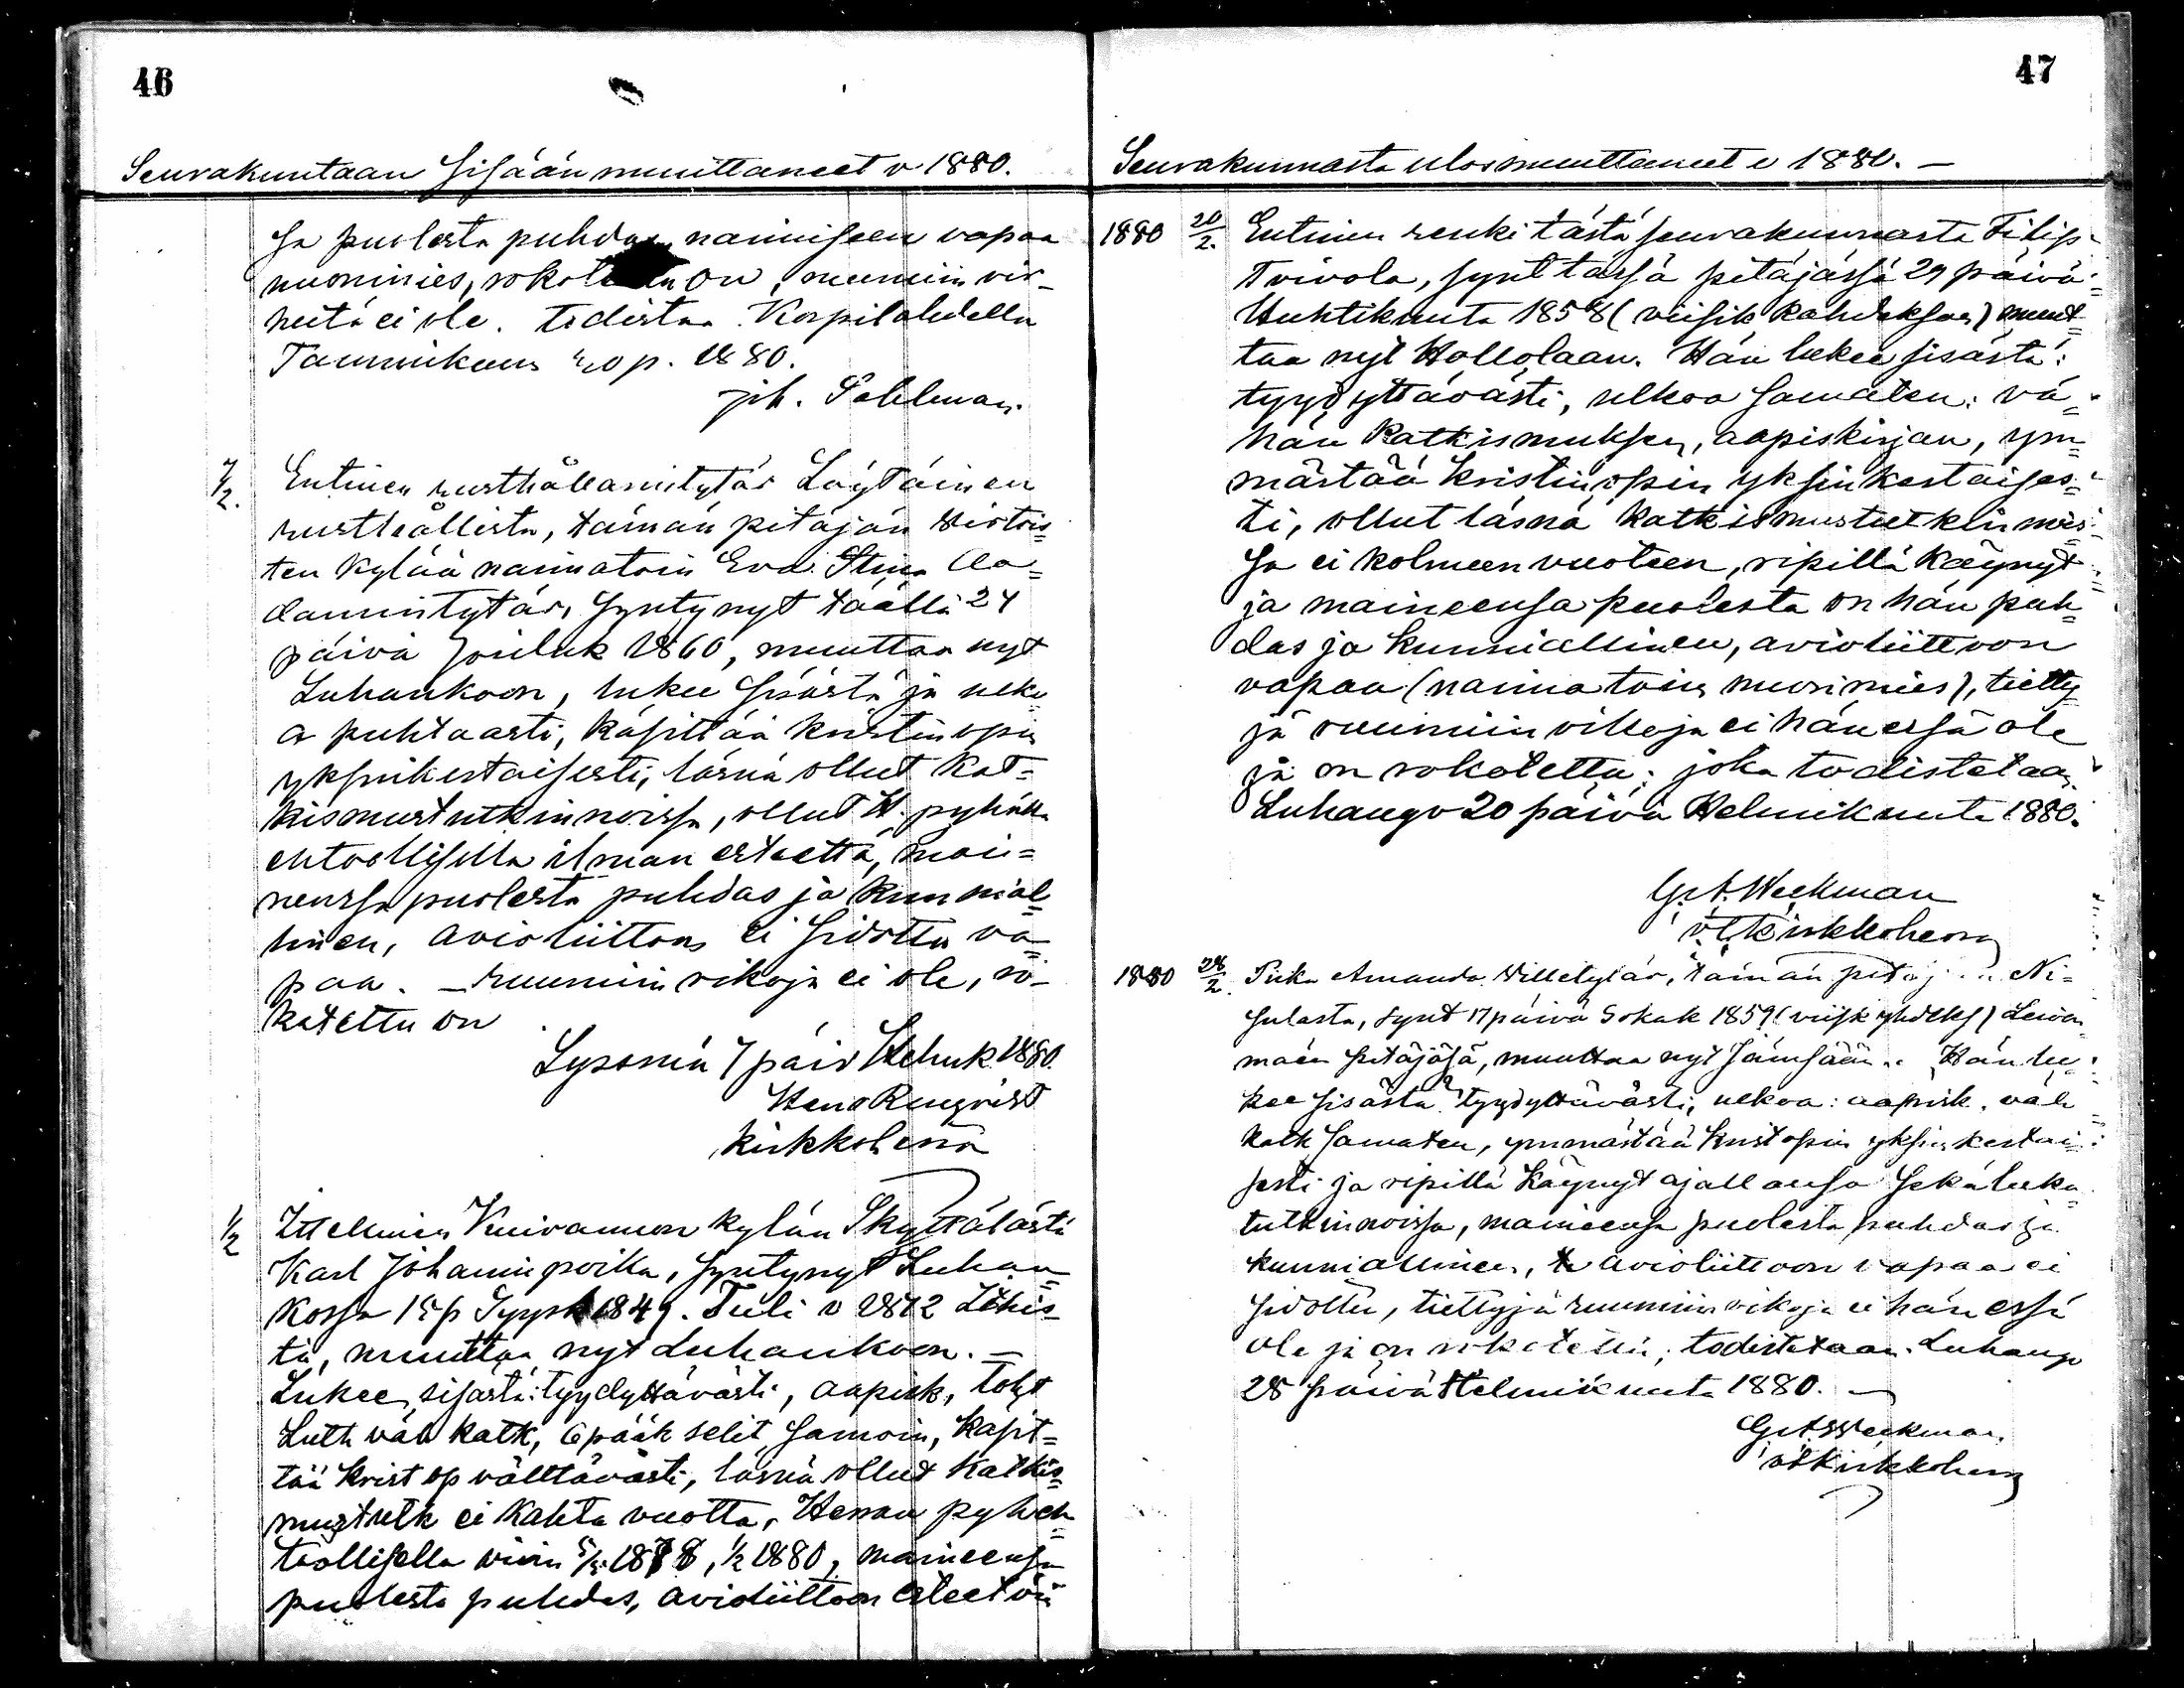 46
Seurakuntaan sisään muuttaneet v 1880.
sa puolesta puhdas, naimiseen vapaa
nuorimies, rokotettu on, ruumiin vir-
heitä ei ole. todistaa. Korpilahdella
Tammikuun 20 p. 1880.
Joh. Pahlman.
7/2. Entinen rusthållarintytär Löytäinen
rusthollista, tämän pitäjän Hirtois=
ten kylää naimatoin Eva Stina Aa=
damintytär, syntynyt täällä 24
päivä Jouluk 1860, muuttaa nyt
Luhankoon, lukee sisästä ja ulko
a puhtaasti, käsittää kristin opin
yksinkertaisesti, läsnä ollut kat=
kismustutkinnoissa, ollut H. pyhällä
ehtoollisella ilman estettä, mai=
neensa puolesta puhdas ja kunnial=
linen, avioliittoon ei sidottu va=
paa. - ruumiin vikoja ei ole, ro-
kotettu on.
Sysmä 7 päiv Helmik 1880.
Renqvist
kirkkoherra
1/2 Itsellinen Kuivannon kylän Skyttälästä
Karl Johaninpoika, syntynyt Luhan=
kossa 15 p Syysk 1849. Tuli v 1872
tä, muuttaa nyt Luhankoon. -
Lukee sisästä: tyydyttävästi, aapisk,
Luth väh katk, 6 pääk selit samoin, käsit=
tää krist op välttävästi, läsnä ollut katkis=
mustutk ei kahta vuotta, Herran pyh eh=
toollisella viim 1878, 1/2 1880, maineensa
puolesta puhdas, avioliittoon esteetöin
47
Seurakunnasta ulosmuuttaneet v 1880. -
1880 20/2. Entinen renki tästä seurakunnasta Filip
Toivola, synt tässä pitäjässä 29 päivä
Huhtikuuta 1858 (viisik kahdeksan) muut=
taa nyt Hollolaan. Hän lukee sisästä:
tyydyttävästi, ulkoa samaten: vä=
hän Katkismuksen, aapiskirjan, ym=
märtää kristin opin yksinkertaises=
ti, ollut läsnä katkismustutkinnois=
sa ei kolmeen vuoteen, ripillä käynyt
ja maineensa puolesta on hän puh=
das ja kunniallinen, avioliittoon
vapaa (naimatoin nuorimies), tietty=
jä ruumiin vikoja ei hänessä ole
ja on rokotettu; joka todistetaan.
Luhango 20 päivä Helmikuuta 1880.
G. A. Weckman
vt kirkkoherra
1880 28/2. Piika Amanda Villetytär, tämän pitäjän Ni=
sulasta, synt 17 päivä Lokak 1859 (viisk yhdeks) Leivon
mäen pitäjäsä, muuttaa nyt Jämsään. Hän lu=
kee sisästä tyydyttävästi, ulkoa: aapisk. väh
katk samaten, ymmärtää krist opin yksin kertai=
sesti ja ripillä käynyt ajallansa sekä luku
tutkinnoissa, maineensa puolesta puhdas ja
kunniallinen, avioliittoon vapaa ei
sidottu, tiettyjä ruumiin vikoja ei hänessä
ole ja on rokotettu; todistetaan. Luhango
28 päivä Helmikuuta 1880. -
G A Weckman.
vt kirkkoherra